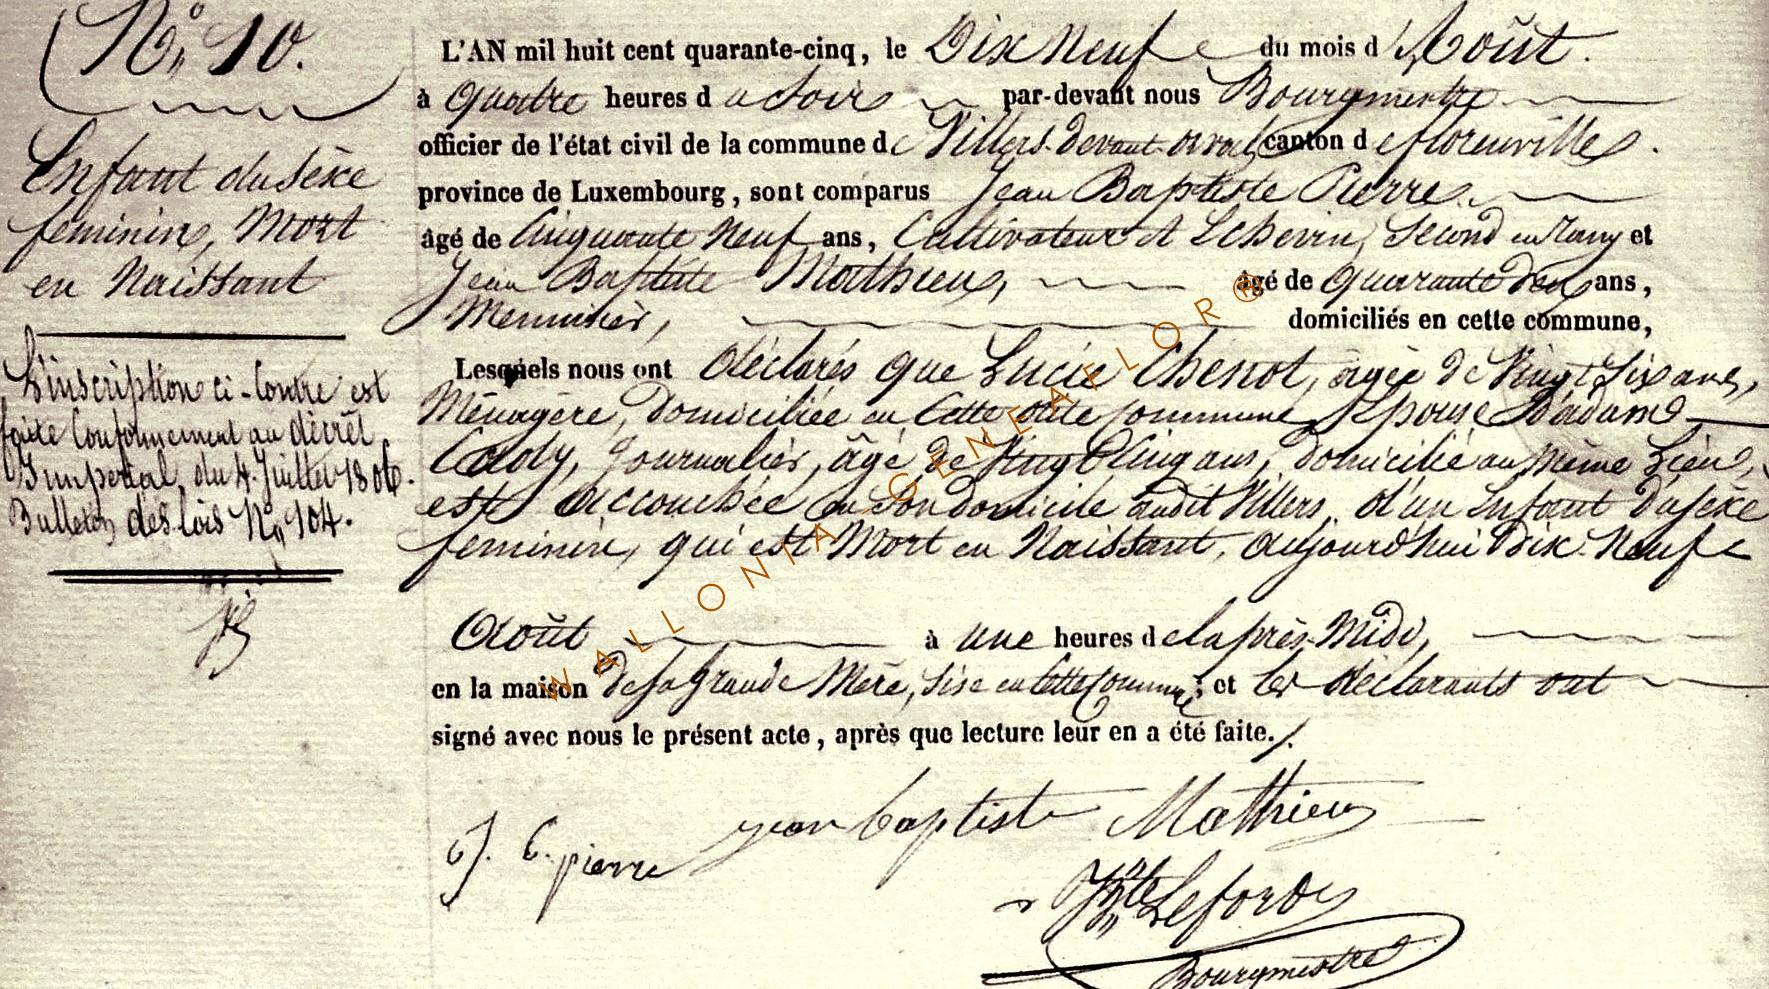 N° 10.
Enfant du Sèxe
féminin, Mort
en Naissant
L'inscription ci-Contre est
faite Conformement au décrêt
Imperial du 4. Juillet 1806.
Bulletin des lois N° 104.
L'AN mil huit cent quarante-cinq, le Dix Neuf du mois d'Août.
à quatre heures du Soir par-devant nous Bourgmestre
officier de l'état civil de la commune de Villers-devant-orval canton de florenville.
province de Luxembourg, sont comparus Jean Baptiste Pierre.
âgé de Cinquante Neuf ans, Cultivateur et Echevin, Second en Rang et
Jean Baptiste Mathieu, âgé de quarante deux ans,
Menuisier, domiciliés en cette commune,
Lesquels nous ont déclarés que Lucie Chenot, agée de Vingt Six ans,
Ménagère, domiciliée en Cette dite Commune, Epouse D'adam
Cady, Journalier, âgé de Vingt Cinq ans, domicilié au Même Lieu,
est accouchée en son domicile audit Villers, d'un Enfant du sèxe
feminin, qui est Mort en Naissant, aujourd'hui Dix-Neuf
Août à une heures de laprès-Midi,
en la maison de sa grande Mère, Sise en cette Commune; et les déclarants ont
signé avec nous le présent acte, après que lecture leur en a été faite./.
J. b. pierre
jean baptiste Mathieu
Bourgmestre
WALLONIA GENEAFLOR®